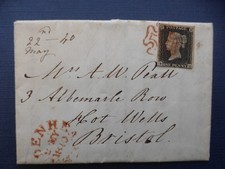 22nd - 40
May
Mrs A. W. Peatt
3 Albemarle Row
Hot Wells
Bristol.